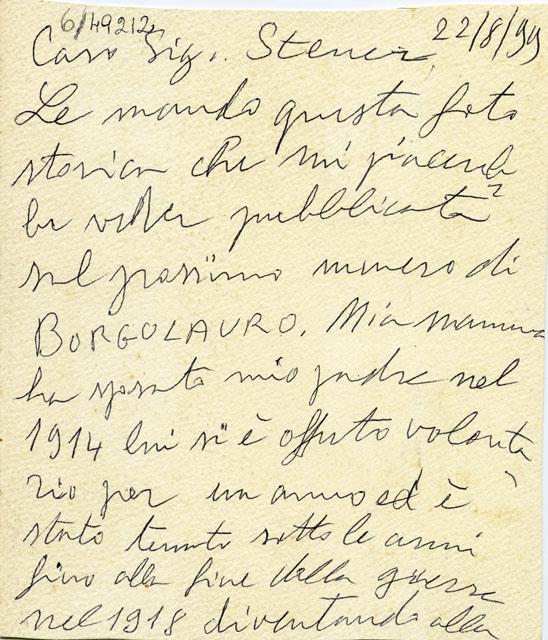 6/49212
22/8/99
Caro Sig. Stener,
Le mando questa foto
storica che mi piacereb
be veder pubblicata
sul prossimo numero di
BORGOLAURO. Mia mamma
ha sposato mio padre nel
1914 lui si è offerto volonta
rio per un anno ed è
stato tenuto sotto le armi
fino alla fine della guerra
nel 1918 diventando alla